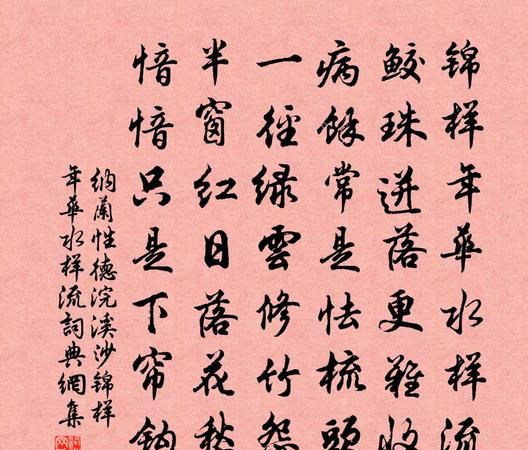 锦样年华水样流
鲛珠迸落更难收
病余常是怯梳头
一径绿云修竹怨
半窗红日落花愁
愔愔只是下帘钩
纳兰性德浣溪沙锦样
年华水样流词典网集